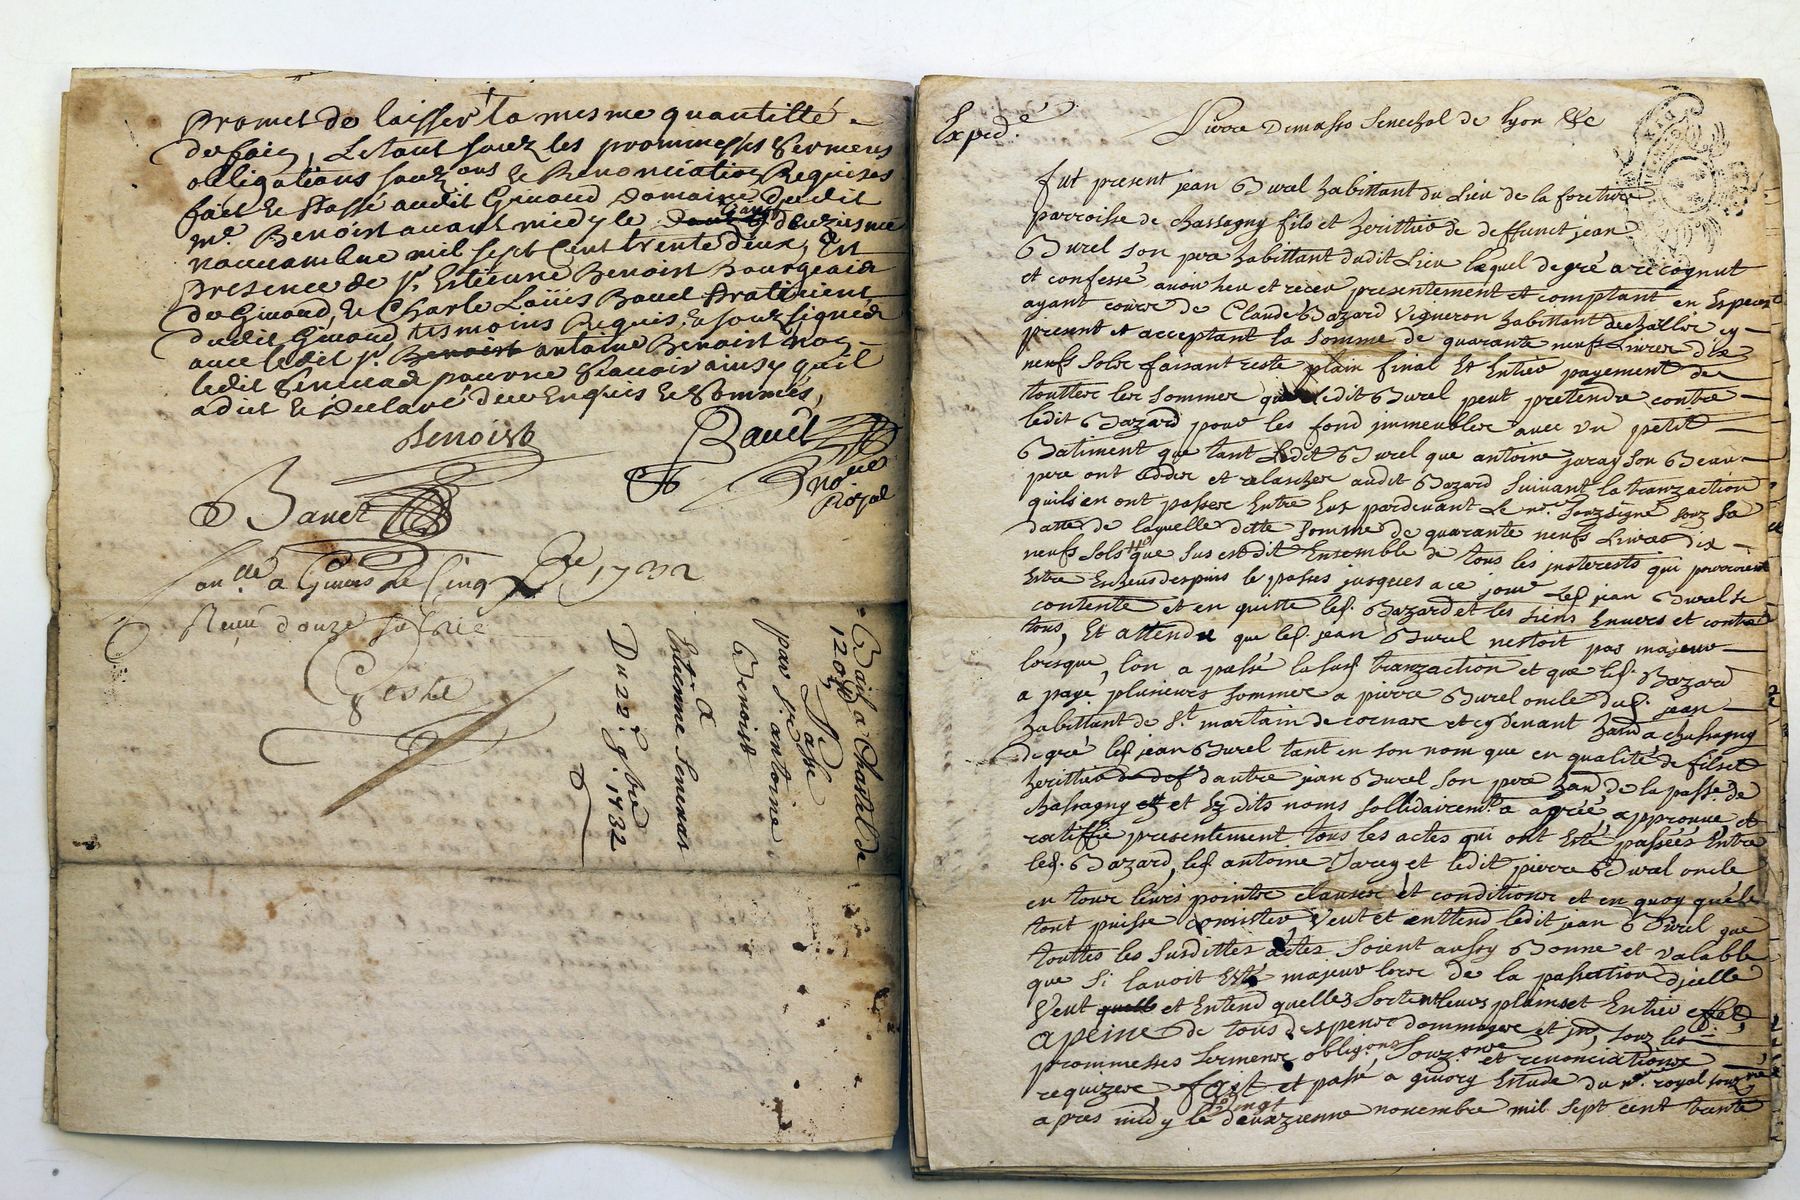 promet de laisser la mesme quantitté
de foin, Le tout souz les prommesses sermens
obligations souz ons et Renonciations Requises
fait et Passé audit Givord domaine dudit
Me. Benoist avant midy le vingt deuziesme
nouvambre mil sept Cent trente deux, En
presence de Sr. Estienne Benoist Bourgeois
de Givord, et Charle Loüis Bavet Praticient
dudit Givord tesmoins Requis, et souz signés
avec ledit Sr. antoine Benoist non
ledit pour ne Scavoir ainsy qu'il
a dit et Declaré de ce Enquis et Sommés,
Benoist
Bavet
Bavet
nore
Royal
a Givors le Cinq Xbre 1732
Receu douze sols
Geste
Bail a Chastel de
120
Passé
par Sr. antoine
Benoist
a
Estienne
Du 22e. 9bre 1732
Exped.é
Pierre Demasso Senechal de lyon &c
fut present jean Burel habittant du Lieu de la foretiere
parroisse de Chassagny fils et heritier de deffunct jean
Burel son pere habittant dudit Lieu lequel de gré a recognut
et confessé avoir heu et receu presentement et comptant en Especes
ayant cours de Claude Bazard vigneron habittant de cy
present et acceptant la somme de quarante neufs Livres dix
neufs solz faisant reste plain final Et Entier payement de
touttes les sommes que ledit Burel peut pretendre contre
ledit Bazard pour les fond immeubles avec un petit
Batiment que tant Ledit Burel que antoine jaray son Beau
pere ont cedder et relascher audit Bazard suivant la tranzaction
quils en ont passée Entre Eux pardevant Le nre. souzsigné souz sa
datte de laquelle ditte somme de quarante neufs Livres dix
neufs sols que sus est dit Ensemble de tous les insterests qui pourroient
Estre Encheus despuis le passés jusques a ce jour led. jean Burel se
contente et en quitte led. Bazard et les siens Envers et contre
tous, Et attendu que led. jean Burel nestoit pas majeur
lorsque, lon a passé la sud. tranzaction et que led. Bazard
a payé plusieurs sommes a pierre Burel oncle dud. jean
habittant de St. martain de cornas et cy devant a chassagny
de gré led. jean Burel tant en son nom que en qualité de fils et
heritier dautre jean Burel son pere de la passe de
chassagny et ez dits noms sollidairemt. a agréé approuve et
ratiffie presentement tous les actes qui ont Esté passées Entre
led. Bazard, led. antoine Jarey et ledit pierre Burel oncle
en tour leurs pointz clauses et conditions et en quoy quele
tout puisse consister, Veut et enttend ledit jean Burel que
touttes les susdittes actes soient aussy Bonne et valable
que si lavoit Esté majeur lors de la passation dicelle
Veut et Entend quelles sortent leurs plains et Entier effet,
a peine de tous despens dommages et in, souz les
prommesses sermens obligons, souz ons et renonciations
requizes, fait et passé a givors Estude du nre. royal souz né
apres midy le vingt deuxzieme novembre mil sept cent trante